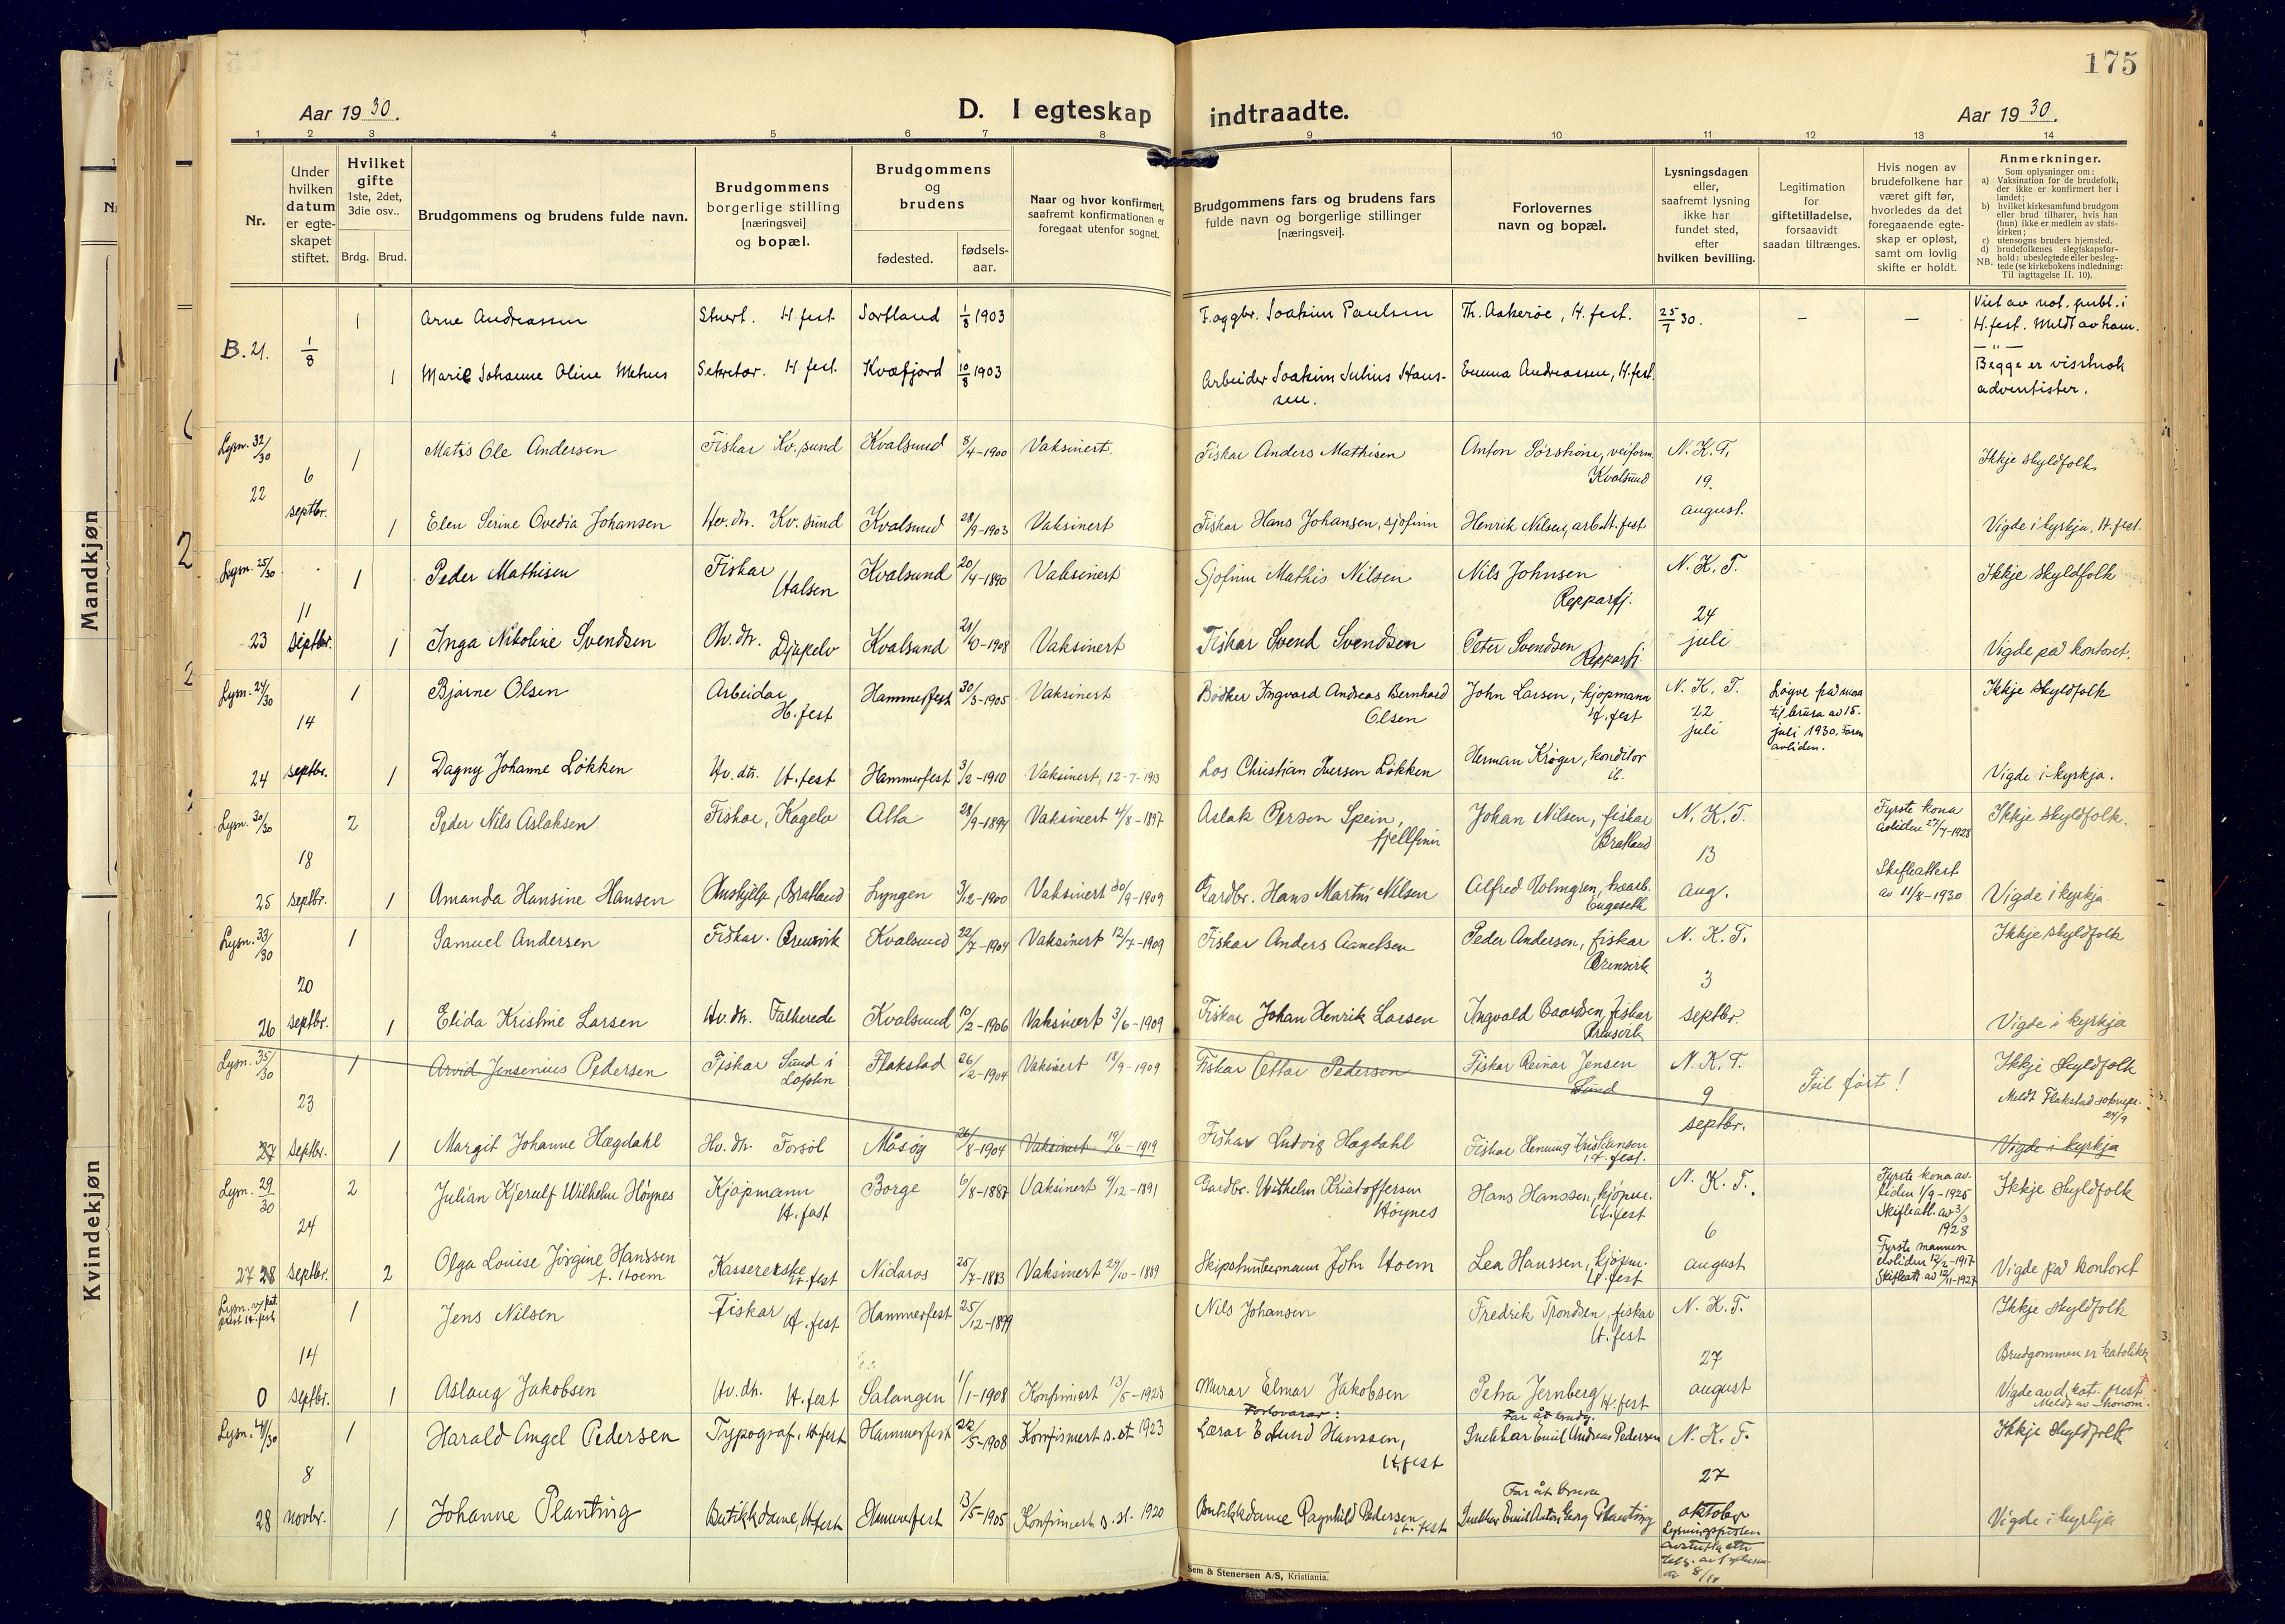 175
Aar 1930.
D. I egteskap indtraadte.
Aar 1930.
1 2 3 4 5 6 7 8 9 10 11 12 13 14
Nr.
Under hvilken datum er egteskapet stiftet.
Hvilket gifte 1ste, 2det, 3die osv..
Brdg. Brud.
Brudgommens og brudens fulde navn.
Brudgommens borgerlige stilling [næringsvei] og bopæl.
Brudgommens og brudens
fødested. fødselsaar.
Naar og hvor konfirmert, saafremt konfirmationen er foregaat utenfor sognet.
Brudgommens fars og brudens fars fulde navn og borgerlige stillinger [næringsvei].
Forlovernes navn og bopæl.
Lysningsdagen eller, saafremt lysning ikke har fundet sted, efter hvilken bevilling.
Legitimation for giftetilladelse, forsaavidt saadan tiltrænges.
Hvis nogen av brudefolkene har været gift før, hvorledes da det foregaaende egteskap er opløst, samt om lovlig skifte er holdt.
Anmerkninger.
Som oplysninger om:
a) Vaksination for de brudefolk, der ikke er konfirmert her i landet;
b) hvilket kirkesamfund brudgom eller brud tilhører, hvis han (hun) ikke er medlem av statskirken;
c) utensogns bruders hjemsted.
d) brudefolkenes slegtskapsforhold: ubeslegtede eller beslegtede (se kirkebokens indledning: Til iagttagelse II. 10).
NB.
Mandkjøn
Kvindekjøn
B. 21. 1/8
1 Arne Andreassen Stuert. H.fest Sortland 1/8 1903 F. oggbr. Joakim Paulsen Th. Aakerøe, H.fest. 25/7 30. — — Viet av not. publ. i H.fest. Meldt av ham.
1 Marie Johanne Oline Mehus Sekretær. H.fest. Kvæfjord 10/8 1903 Arbeider Joakim Julius Hanssen. Emma Andreassen, H.fest. Begge er visstnok adventister.
Lysn. 32/30 22 6 septbr.
1 Matis Ole Andersen Fiskar Kv.sund Kvalsund 8/4-1900 Vaksinert. Fiskar Anders Mathisen Anton veiform. Kvalsund N. K. T. 19. august. Ikkje skyldfolk
1 Elen Serine Ovedia Johansen Hv. dtr. Kv.sund Kvalsund 28/9-1903 Vaksinert Fiskar Hans Johansen, sjøfinn Henrik Nilsen, arb. H.fest Vigde i kyrkja, H.fest.
Lysn. 25/30 23 11 septbr.
1 Peder Mathisen Fiskar Halsen Kvalsund 20/4-1890 Vaksinert Sjøfinn Mathis Nilsen Nils Johnsen Repparfj. N. K. T. 24 juli Ikkje skyldfolk
1 Inga Nikoline Svendsen Hv. dtr. Djupelv Kvalsund 1908 Vaksinert Fiskar Svend Svendsen Peter Svendsen Repparfj. Vigde på kontoret.
Lysn. 24/30 24 14 septbr.
1 Bjarne Olsen Arbeidar H.fest Hammerfest 30/3-1905 Vaksinert Bødker Ingvard Andreas Bernhard Olsen John Larsen, kjøpmann H.fest N. K. T. 22 juli Løyve frå moa til brura av 15. juli 1930. Faren avliden. Ikkje skyldfolk
1 Dagny Johanne Løkken Hv. dtr. H.fest Hammerfest 3/2-1910 Vaksinert, 12-7-1913 Los Christian Iversen Løkken Herman Krøger, konditor ib. Vigde i kyrkja.
Lysn. 30/30 25 18 septbr.
2 Peder Nils Aslaksen Fiskar, Kagelv Alta 28/9-1894 Vaksinert 4/8-1897 Aslak Persen Spein, fjellfinn Johan Nilsen, fiskar Bratland N. K. T. 13 aug. Fyrste kona avliden 27/7-1928 Ikkje skyldfolk.
1 Amanda Hansine Hansen Hushjelp, Bratland Lyngen 3/12-1900 Vaksinert 30/9-1909 Gardbr. Hans Martin Nilsen Alfred Holmgren, Skifteattest av 11/8-1930 Vigde i kyrkja
Lysn. 33/30 26 20 septbr.
1 Samuel Andersen Fiskar. Kvalsund 22/7-1904 Vaksinert 12/7-1909 Fiskar Anders Peder Andersen, fiskar N. K. T. 3 septbr. Ikkje skyldfolk
1 Elida Kristine Larsen Hv. dtr. Kvalsund 10/2-1906 Vaksinert 3/6-1909 Fiskar Johan Henrik Larsen Ingvald Baardsen, fiskar Vigde i kyrkja
Lysn. 35/30 27 23 septbr.
1 Arvid Jensenius Pedersen Fiskar Sund i Lofoten Flakstad 26/2-1904 Vaksinert 18/9-1909 Fiskar Ottar Pedersen Fiskar Reinar Jensen Sund N. K. T. 9 septbr. Feil ført! Ikkje skyldfolk Meldt Flakstad sokneprest 24/9
1 Margit Johanne Hægdahl Hv. dtr. Forsøl Måsøy 26/8-1904 Vaksinert 19/6-1919 Fiskar Ludvig Hægdahl Fiskar Henning Kristiansen H.fest. Vigde i kyrkja
Lysn. 29/30 27 28 24 septbr.
2 Julian Kjerulf Wilhelm Höynes Kjøpmann H.fest Borge 6/8-1887 Vaksinert 9/12-1891 Gardbr. Wilhelm Kristoffersen Höynes Hans Hanssen, kjøpm. H.fest N. K. T. 6 august Fyrste kona avliden 1/9-1925 Skifteatt. av 3/3 1928 Ikkje skyldfolk
2 Olga Louise Jørgine Hanssen f. Hoem Kassererske H.fest Nidaros 25/7-1883 Vaksinert 24/10-1889 Skipstømmermann John Hoem Lea Hanssen, kjøpm. H.fest Fyrste mannen avliden 12/2-1917 Skifteatt. av 12/11-1927 Vigde på kontoret
Lysn. v/ kat. prest H.fest 0 14 septbr.
1 Jens Nilsen Fiskar H.fest Hammerfest 25/12-1899 Nils Johansen Fredrik Trondsen, fiskar H.fest N. K. T. 27 august Ikkje skyldfolk Brudgommen er katolikk
1 Aslaug Jakobsen Hv. dtr. H.fest Salangen 1/1-1908 Konfirmert 13/5-1923 Murar Elmar Jakobsen Petra Jernberg H.fest Vigde av d. kat. prest Meldt av honom.
Lysn. 41/30 28 8 novbr.
1 Harald Angel Pedersen Typograf, H.fest Hammerfest 22/5-1908 Konfirmert s. st. 1923 Forlovarar: Lærar Edlund Hanssen, H.fest Far åt brudg. Snekkar Emil Andreas Pedersen N. K. T. 27 oktober Ikkje skyldfolk
1 Johanne Planting Butikkdame, H.fest Hammerfest 13/5-1905 Konfirmert s. st. 1920 Butikkdame Ragnhild Pedersen H.fest Far åt brura Snekkar Emil Anton Georg Planting Vigde i kyrkja
Sem & Stenersen A/S, Kristiania.